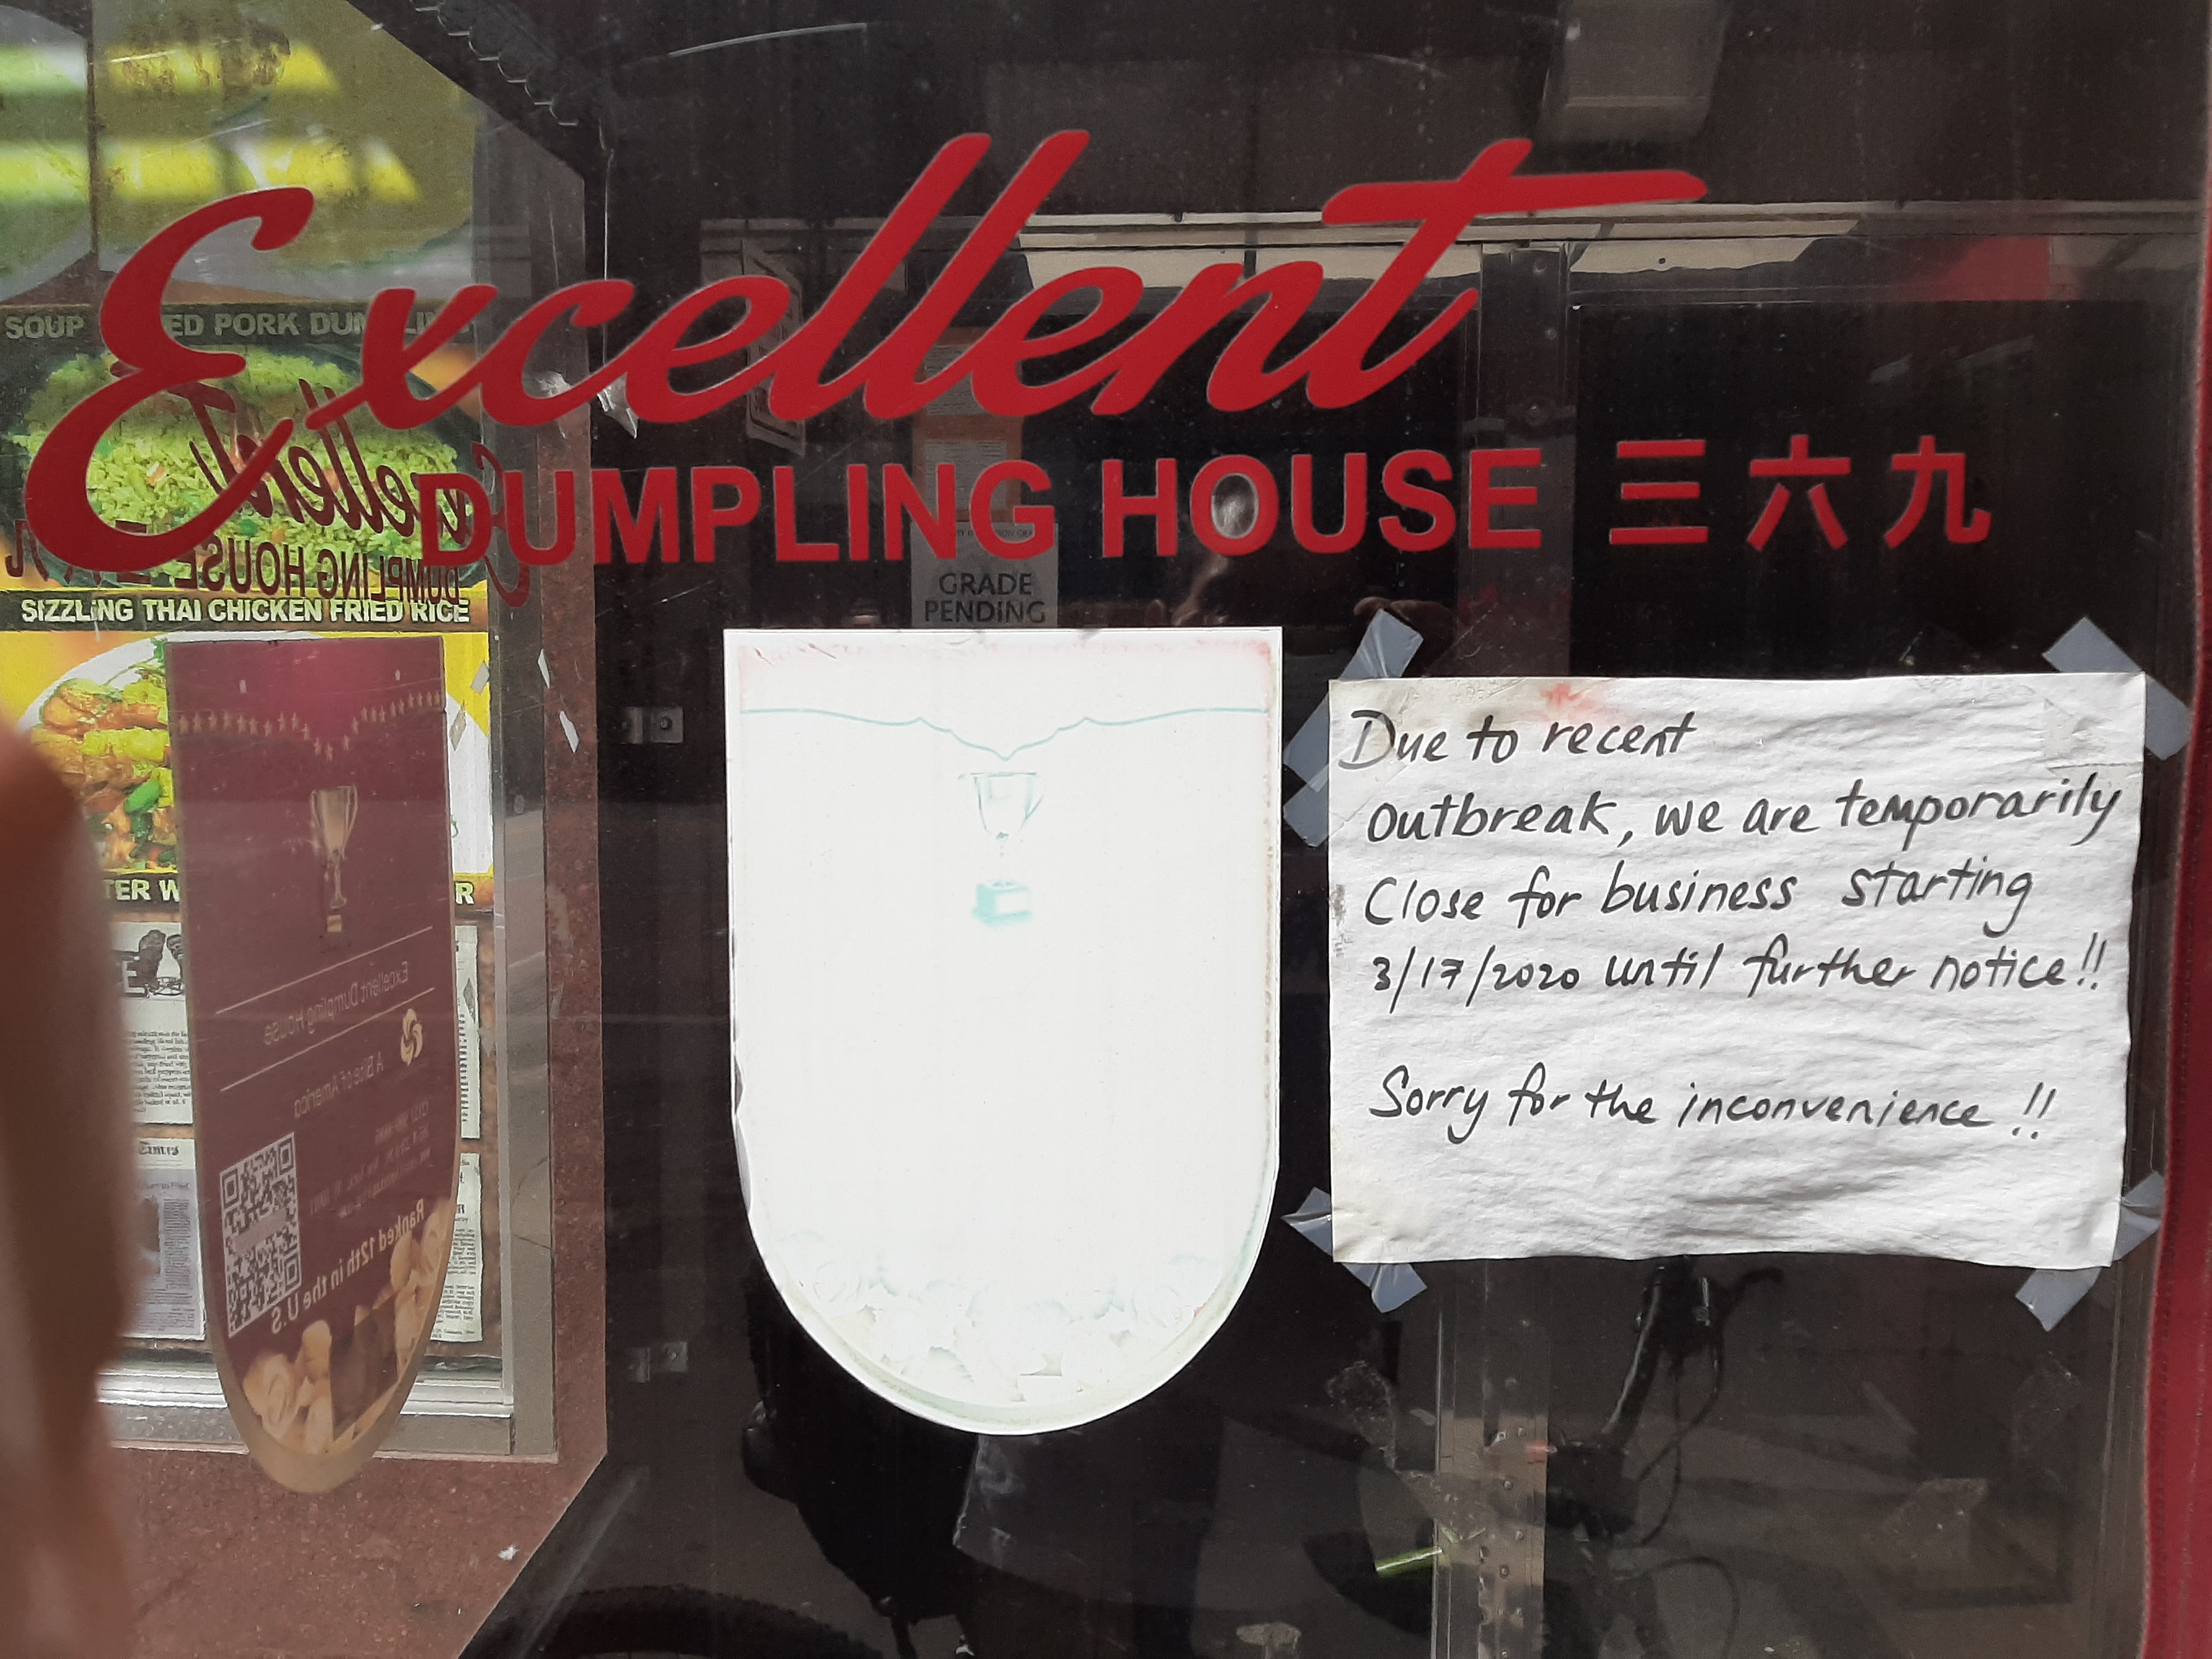 Excellent
DUMPLING HOUSE 三六九
GRADE
PENDING
SIZZLING THAI CHICKEN FRIED RICE
Excellent Dumpling House
A Bite of America
Ranked 12th in the
U.S
Due to recent
outbreak, we are temporarily
Close for business starting
3/17/2020 until further notice!!
Sorry for the inconvenience!!